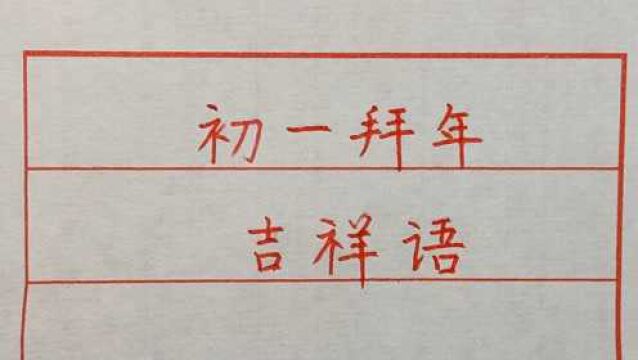 初一拜年
吉祥语